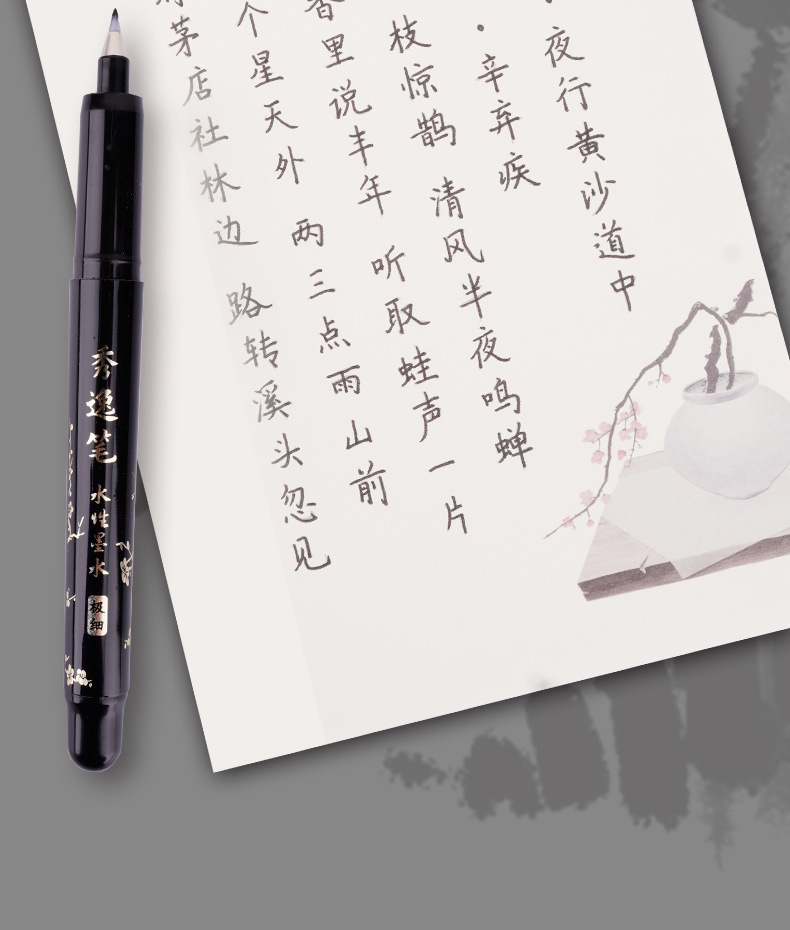 ·夜行黄沙道中
·辛弃疾
枝惊鹊 清风半夜鸣蝉
香里说丰年 听取蛙声一片
个星天外 两三点雨山前
茅店社林边 路转溪头忽见
秀逸笔 水性墨水 极细